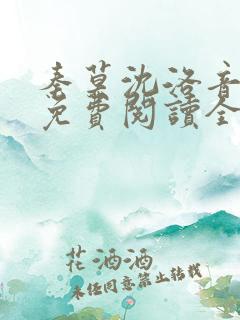 秦墓沈洛音
免費閱讀全
花酒酒
未经同意禁止转载